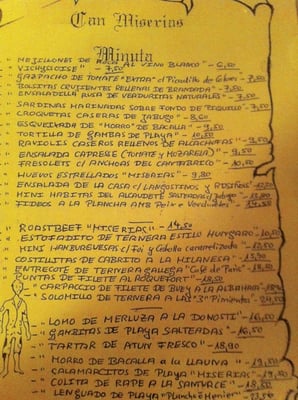 Can Miserias
Minuta
" MEJILLONES DE ROCA AL VINO BLANCO " - 6,50
" VICHYSSOISE " - 7,50
GAZPACHO DE TOMATE "EXTRA" c/ Picadillo de
BOLSITAS CRUJIENTES RELLENAS DE BRANDADA " - 7,50
" ENSALADILLA RUSA DE VERDURITAS NATURALES " - 7,50
" SARDINAS MARINADAS SOBRE FONDO DE PIQUILLO " - 7,50
" CROQUETAS CASERAS DE JABUGO " - 8,60
" ESQUEIXADA DE "MORRO" DE BACALLA " - 9,50
" TORTILLA DE GAMBAS DE PLAYA " - 10,50
" RAVIOLIS CASEROS RELLENOS DE ALCACHOFAS " - 9,50
" ENSALADA CAPRESE (TOMATE y MOZARELA) " - 9,50
" FRESOLETS c/ ANCHOAS DEL CANTABRICO " - 10,50
" HUEVOS ESTRELLADOS "MISERIAS" - 9,80
" ENSALADA DE LA CASA c/ LANGOSTINOS y
" MINI HABITAS DEL SALTEADAS c/ Jabugo
" FIDEOS A LA PLANCHA AMB Peix y Verduritas
" ROASTBEEF "MISERIAS" - 14,50
" ESTOFADITO DE TERNERA ESTILO HUNGARO 10,50
" MINI HAMBURGUESAS c/ Foi y Cebolla caramelizada " - 12,50
" COSTILLITAS DE CABRITO A LA MILANESA " - 13,50
" ENTRECOTE DE TERNERA GALLEGA "Café de Paris"
" PUNTAS DE FILETE AL ROQUEFORT "
" CARPACCIO DE FILETE DE BUEY A LA ALBAHACA
" SOLOMILLO DE TERNERA A LAS "3" Pimientas
" LOMO DE MERLUZA A LA DONOSTI " - 16,50
" GAMBITAS DE PLAYA SALTEADAS " - 16,50
" TARTAR DE ATUN FRESCO " - 18,90
" MORRO DE BACALLA a la LLAUNA "
" CALAMARCITOS DE PLAYA "MISERIAS"
" COLITA DE RAPE A LA SANTVACE
" LENGUADO DE PLAYA "Plancha o Menier"